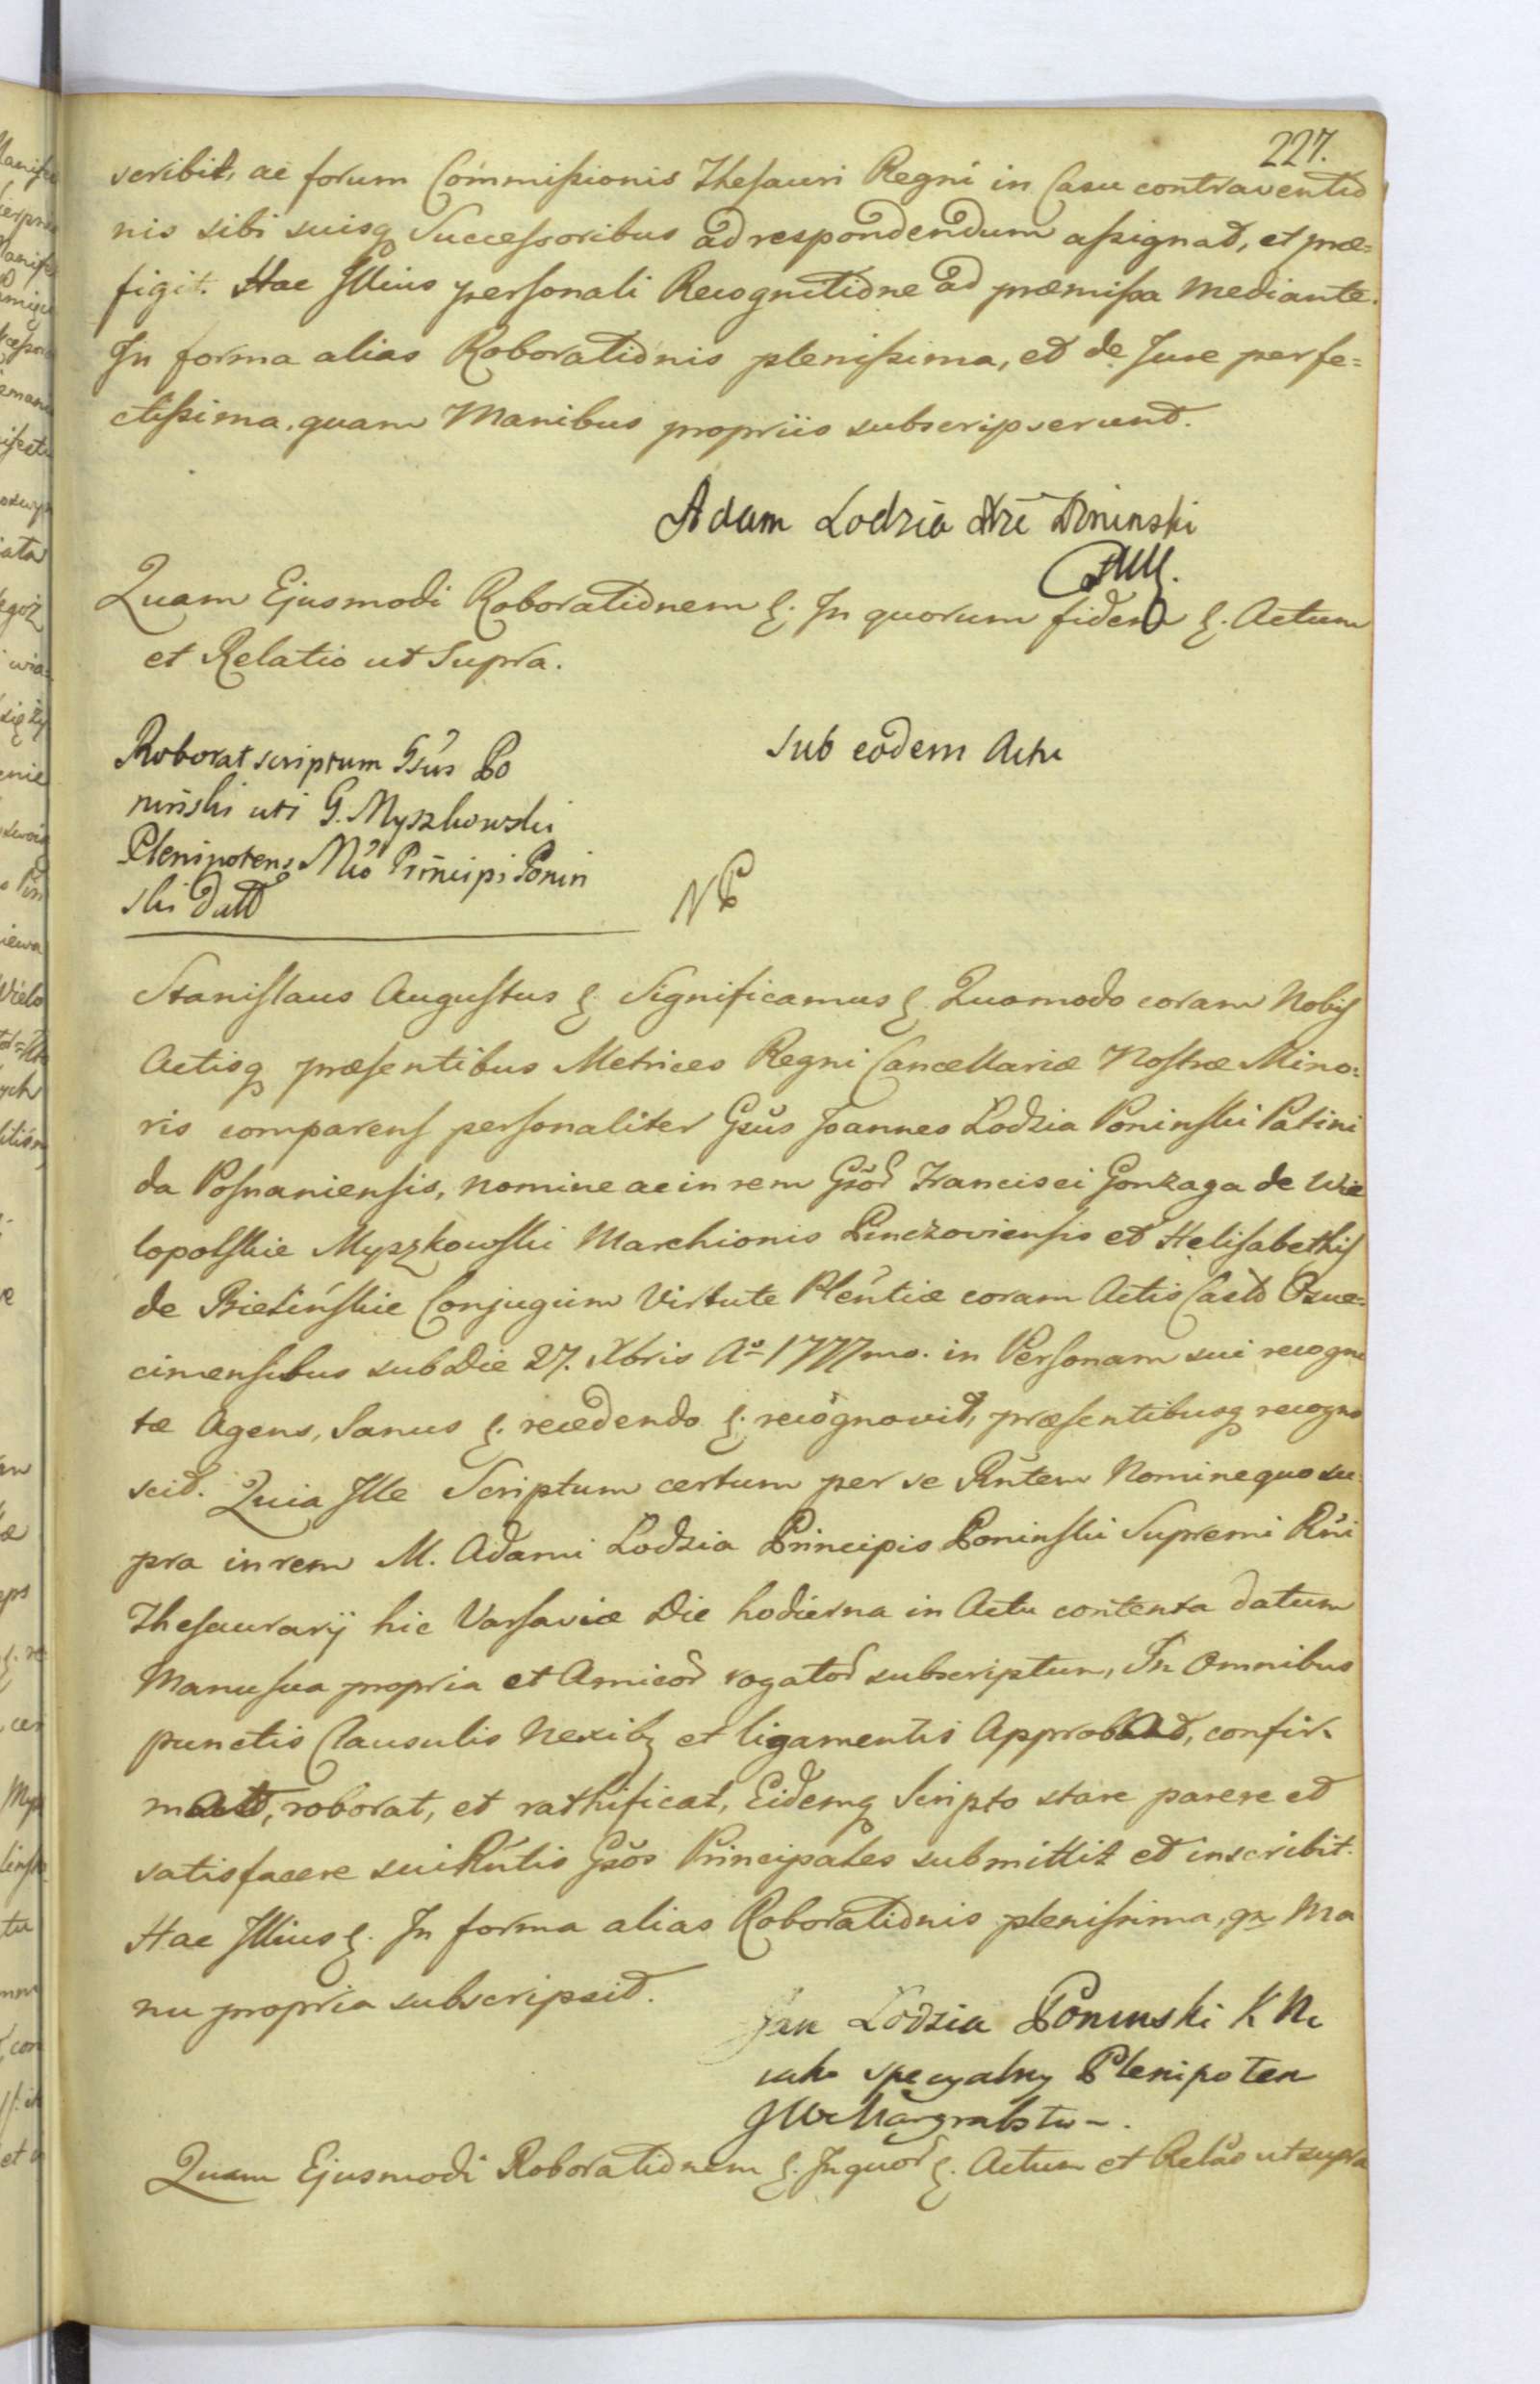 227.
scribit, ac forum Commissionis Thesauri Regni in Casu contraventio
nis sibi suisq Successoribus ad respondendum assignat, et præ=
figit. Hac Illius personali Recognitione ad præmissa mediante.
In forma alias Roborationis plenissima, et de Jure perfe=
ctissima, quam Manibus propriis subscripserunt.
Adam Lodzia Poninski
Quam Ejusmodi Roborationem &. In quorum fidem &. Actum
et Relatio ut Supra.
Roborat scriptum Gsus Po
niński uti G. Myszkowski
Plenipotens Mco Principi Ponin
ski datt
Sub eodem Actu
Stanislaus Augustus &. Significamus &. Quomodo coram Nobis
Actisq præsentibus Metrices Regni Cancellariæ Nostræ Mino=
ris comparens personaliter Gsus Joannes Lodzia Poninski Palini
da Posnaniensis, nomine ac in rem Gsor Francisci Gonzaga de Wie
lopolskie Myszkowski Marchionis Pinczoviensis et Helisabethis
de Bielińskie Conjugum Virtute Plentiæ coram Actis Castr Oswie=
cimensibus sub Die 27. Xbris Ao 1777mo. in Personam sui recogni
tæ Agens, Sanus &. recedendo &. recognovit, præsentibusq recogno
scit. Quia Ille Scriptum certum per se Rntem Nomine quo su
pra in rem M. Adami Lodzia Principis Poninski Supremi Rni
Thesaurarij hic Varsaviæ Die hodierna in Actu contenta datum
Manu sua propria et Amicor rogator subscriptum, In Omnibus
punctis Clausulis Nexibq et ligamentis Approbat, confir=
mat, roborat, et rathificat, Eidemq Scripto stare parere et
satisfacere sui Rntis Gsos Principales submittit et inscribit.
Hac Illius &. In forma alias Roborationis plenissima, qm Ma
nu propria subscripsit.
Jan Lodzia Poninski K N
jako specyalny Plenipoten
JWMargrabstw
Quam Ejusmodi Roborationem &. In quor &. Actum et Relao ut supra